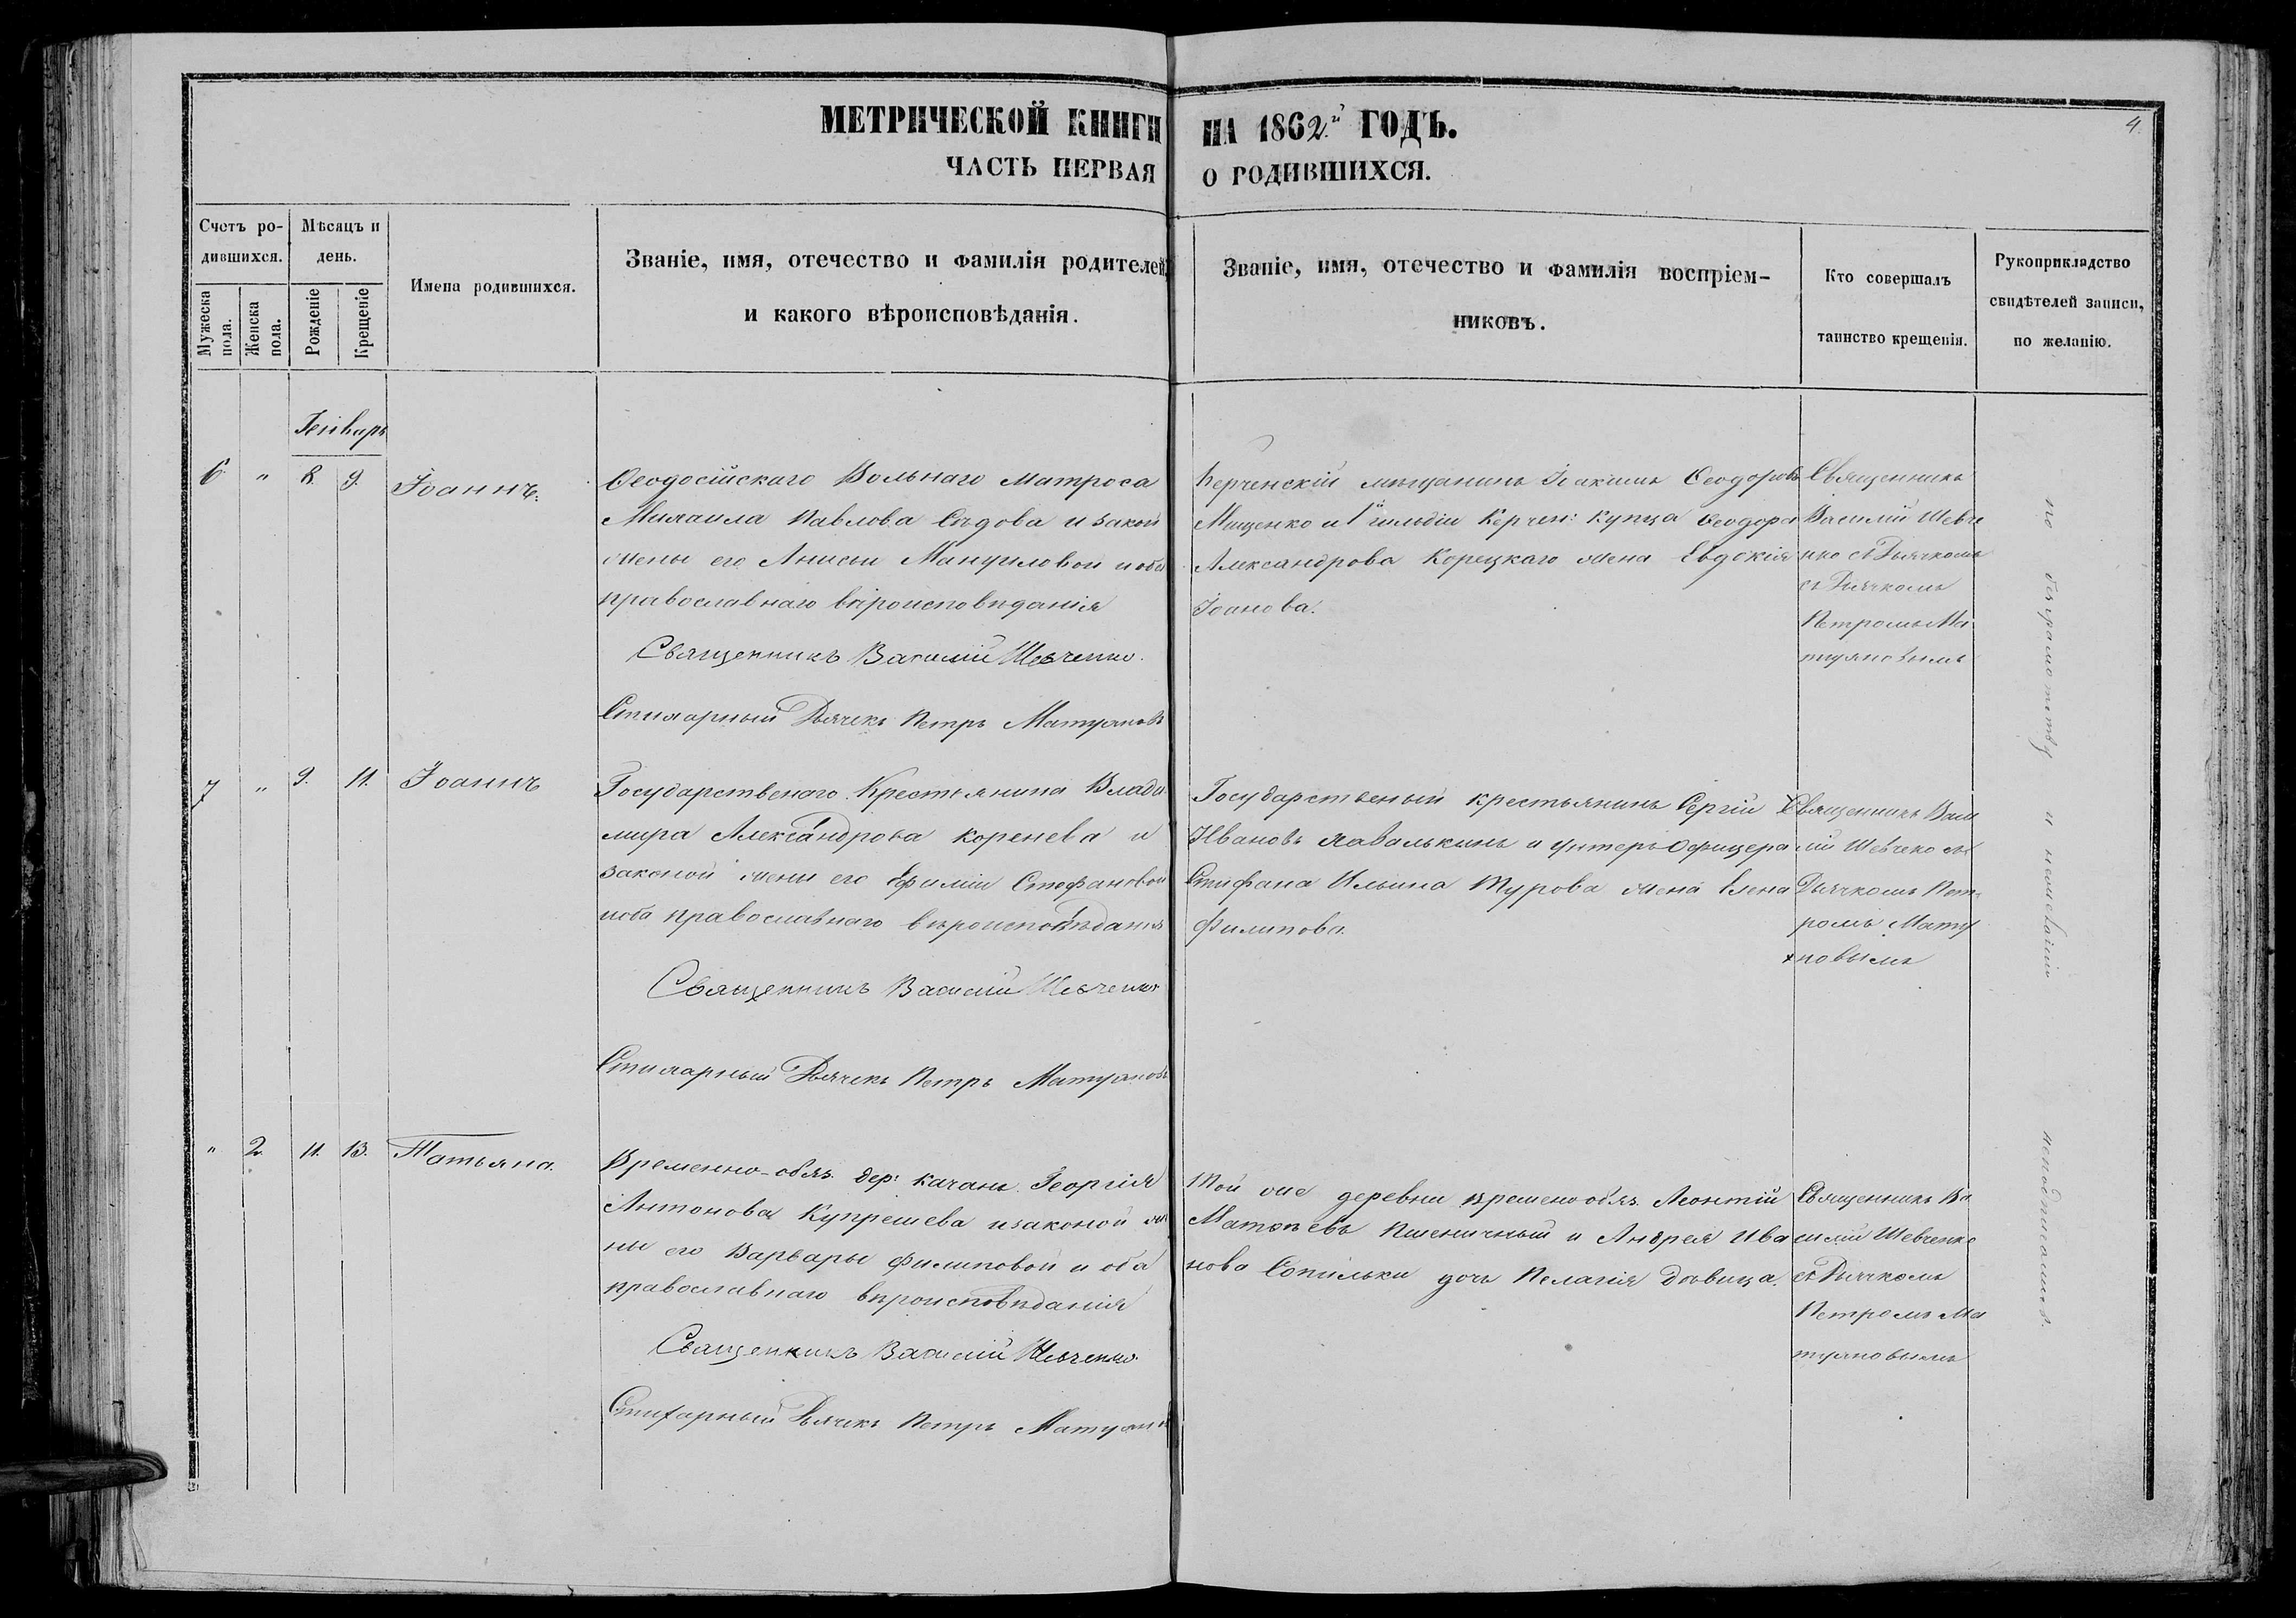 МЕТРИЧЕСКОЙ КНИГИ НА 1862.й ГОДЪ.
4.
ЧАСТЬ ПЕРВАЯ О РОДИВШИХСЯ.
Счетъ ро-
дившихся.
Мужеска пола.
Женска пола.
Мѣсяцъ и
день.
Рожденіе
Крещеніе
Имена родившихся.
Званіе, имя, отечество и фамилія родителей,
и какого вѣроисповѣданія.
Званіе, имя, отечество и фамилія воспріем-
никовъ.
Кто совершалъ
таинство крещенія.
Рукоприкладство
свидѣтелей записи,
по желанію.
Генварь
6. " 8. 9. Іоаннъ.
Ѳеодосійскаго Вольнаго Матроса
Михаила Павлова Сѣдова и закон
жены его Анисьи Мануиловой и оба
православнаго вѣроисповѣданія
Священникъ Василій Шевченко.
Стихарный Дьячекъ Петръ Матухновъ
Керченскій мѣщанинъ Іоакимъ Ѳеодоровъ
Мищенко и 1й гильдіи Керчен: купца Ѳеодора
Александрова Корецкаго жена Евдокія
Іоанова.
Священникъ
Василій Шевче
нко съ Дьячкомъ
съ Дьячкомъ
Петромъ Ма
тухновымъ
7 " 9. 11. Іоаннъ
Государственаго Крестьянина Влади
мира Александрова Коренева и
законой жены его Ефиміи Стефановой
и оба православнаго вѣроисповѣданія
Священникъ Василій Шевченко
Стихарный Дьячекъ Петръ Матухновъ
Государственый крестьянинъ Сергій
Ивановъ и унтеръ-Офицера
Стифана Ильина Турова жена Елена
Филипова.
Священникъ Васи
лій Шевченко съ
Дьячкомъ Пет-
ромъ Мату
хновымъ
" 2 11. 13. Татьяна.
Временно-обяз. дер: Качань Георгія
Антонова Купрешева и законой же
ны его Варвары Филиповой и оба
православнаго вѣроисповѣданія
Священникъ Василій Шевченко.
Стихарный Дьячекъ Петръ Матухн
Той же деревни временообяз. Леонтій
Матвѣевъ Пшеничный и Андрея Ива
нова Сопильки дочь Пелагія дѣвица.
Священникъ Ва
силій Шевченко
съ Дьячкомъ
Петромъ Ма
тухновымъ
по безграмотству и нежеланію неподписались.